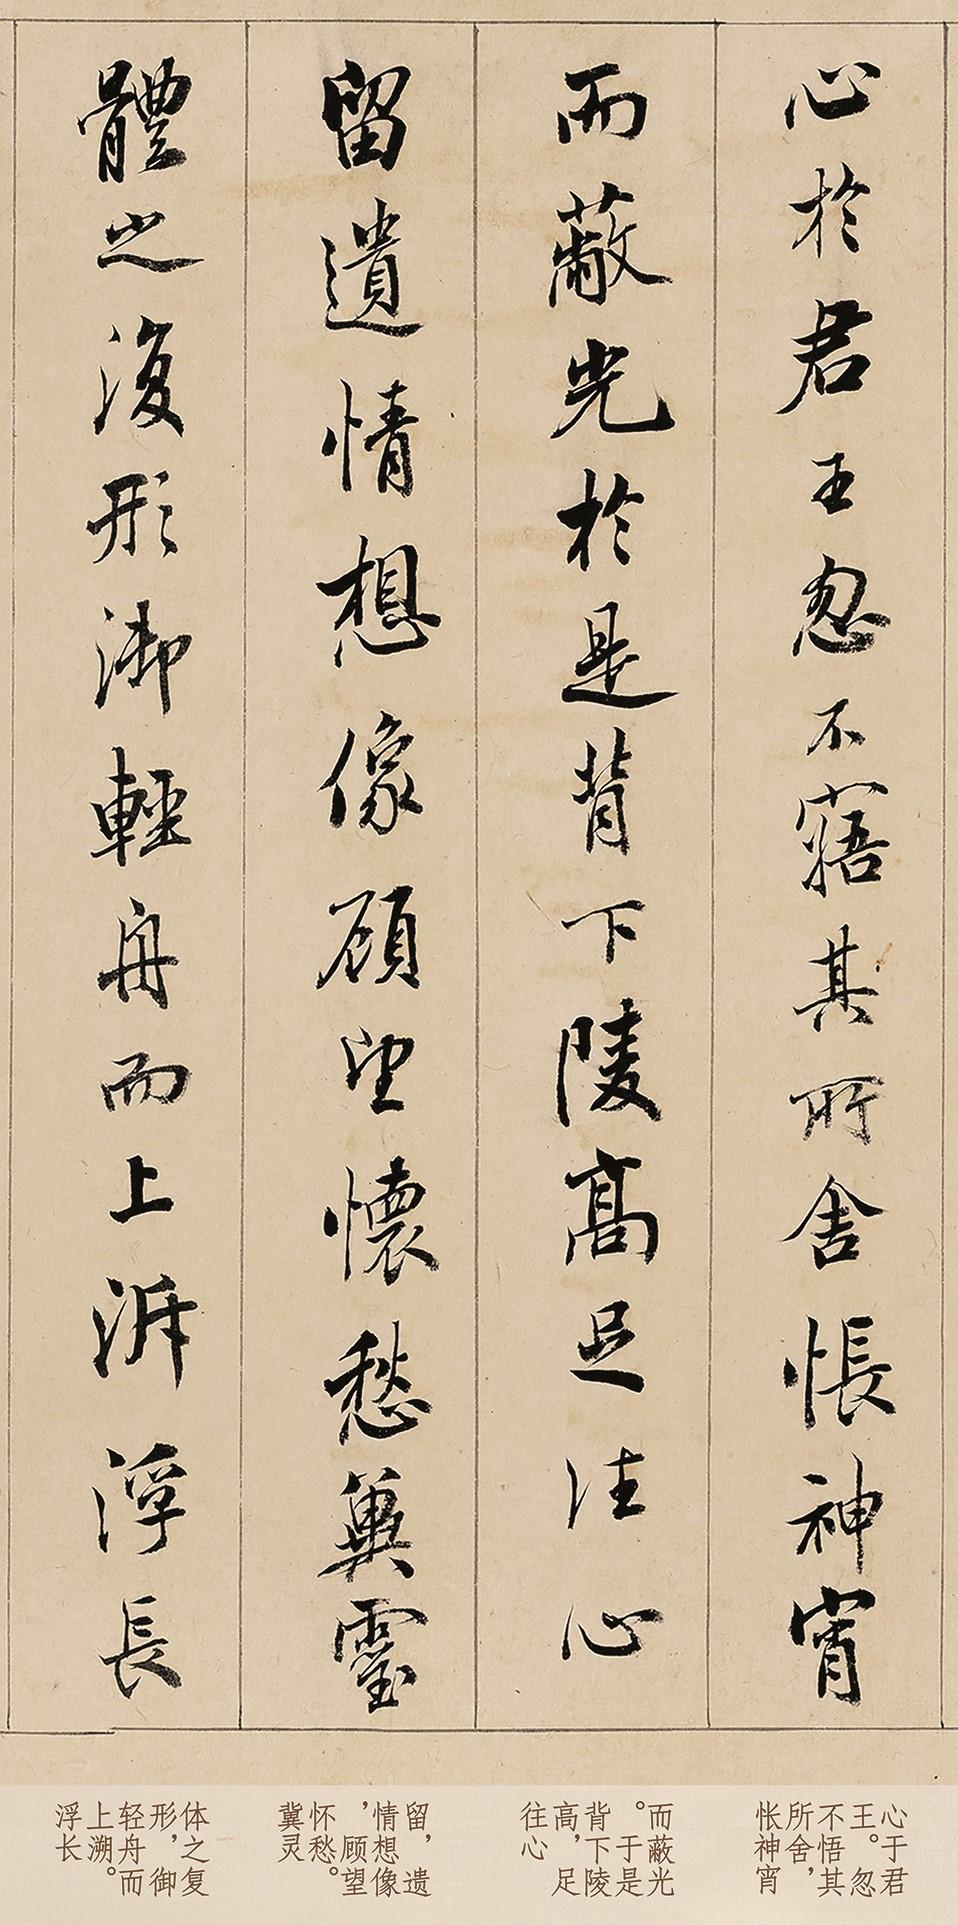 心於君王忽不寤其所舍悵神宵
而蔽光於是背下陵高足往心
留遺情想像顧望懷愁冀靈
體之復形御輕舟而上泝浮長
心于君
王。忽
不悟其
所舍，
怅神宵
而蔽光
。于是
背下陵
高，足
往心
留，遗
情想像
，顾望
怀愁。
冀灵
体之复
形，御
轻舟而
上溯。
浮长